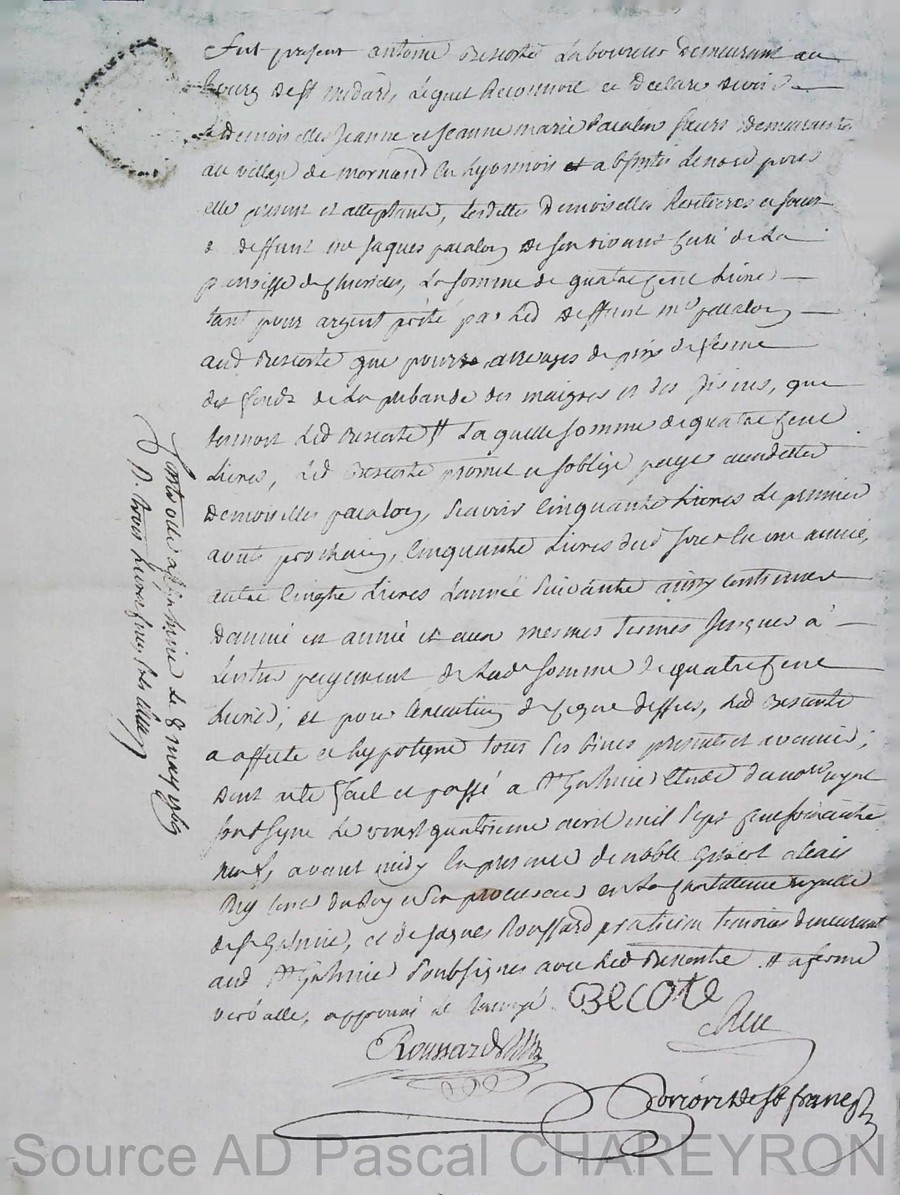 Fut present antoine Bescote Laboureur demeurant au
bourg de St medard, Lequel Reconnoit et declare devoir a
demoiselles Jeanne et Jeanne marie pacalon sœurs demeurantes
au village de mornand en Lyonnois et absentes Le nore pour
elle present et acceptante, Lesdittes demoiselles heritieres et sœurs
deffunt me Jaques pacalon de son vivant Curé de La
paroisse de La somme de quatre Cent Livres
tant pour argent prété par Led deffunt mr pacalon
aud Bescote que pour arrerages de prix de ferme
des fonds de La prebande des maigres et des que
tennoit Led Bescote # Laquelle somme de quatre Cent
Livres, Led Bescote promet et soblige payer auxdittes
demoiselles pacalon, scavoir Cinquante Livres Le premier
aoust prochain, Cinquante Livres dud Jour en une année,
autre Cinqte Livres Lannée suivante ainsy continuer
dannée en année et aux mesmes termes Jusques a
Lentier payement de Lad somme de quatre Cent
Livres; et pour Lexecution de Ce que dessus, Led Bescote
a affecté et hypotéqué tous ses biens presents et avenir;
dont acte fait et passé a St Galmier Etude du nore royal
soussigné Le vingt quatrieme avril mil sept Cent soixante
neuf, avant midy En presence de noble
du Roy et son procureur en La Chatellenie royalle
de St Galmier, et de Jaques Roussard praticien temoins demeurant
aud St Galmier soubsignés avec Led Bescote # a ferme
verballe, approuvé Le renvoyé
BeCOTe
Roussard
Controllé a St Galmier Le 8 may 1769
R. trois Livres
Source AD Pascal CHAREYRON